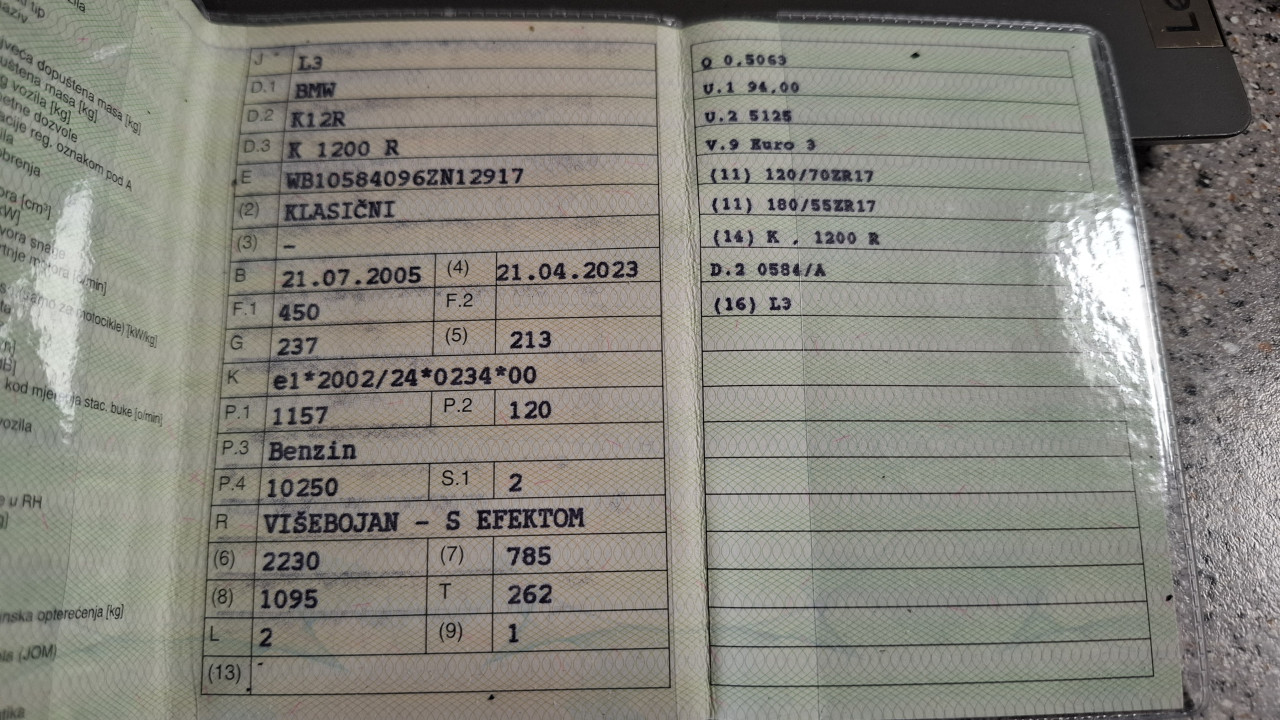 jveća dopuštena masa [kg]
uštena masa [kg]
g vozila [kg]
etne dozvole
acije reg. oznakom pod A
obrenja
ora [cm³]
kW]
vora snage
motocikle) [kW/kg]
kod mjerenja stac. buke [o/min]
vozila
e u RH
anska opterećenja [kg]
(JOM)
J L3
D.1 BMW
D.2 K12R
D.3 K 1200 R
E WB10584096ZN12917
(2) KLASIČNI
(3) –
B 21.07.2005 (4) 21.04.2023
F.1 450 F.2
G 237 (5) 213
K e1*2002/24*0234*00
P.1 1157 P.2 120
P.3 Benzin
P.4 10250 S.1 2
R VIŠEBOJAN - S EFEKTOM
(6) 2230 (7) 785
(8) 1095 T 262
L 2 (9) 1
(13)
Q 0,5063
U.1 94,00
U.2 5125
V.9 Euro 3
(11) 120/70ZR17
(11) 180/55ZR17
(14) K , 1200 R
D.2 0584/A
(16) L3